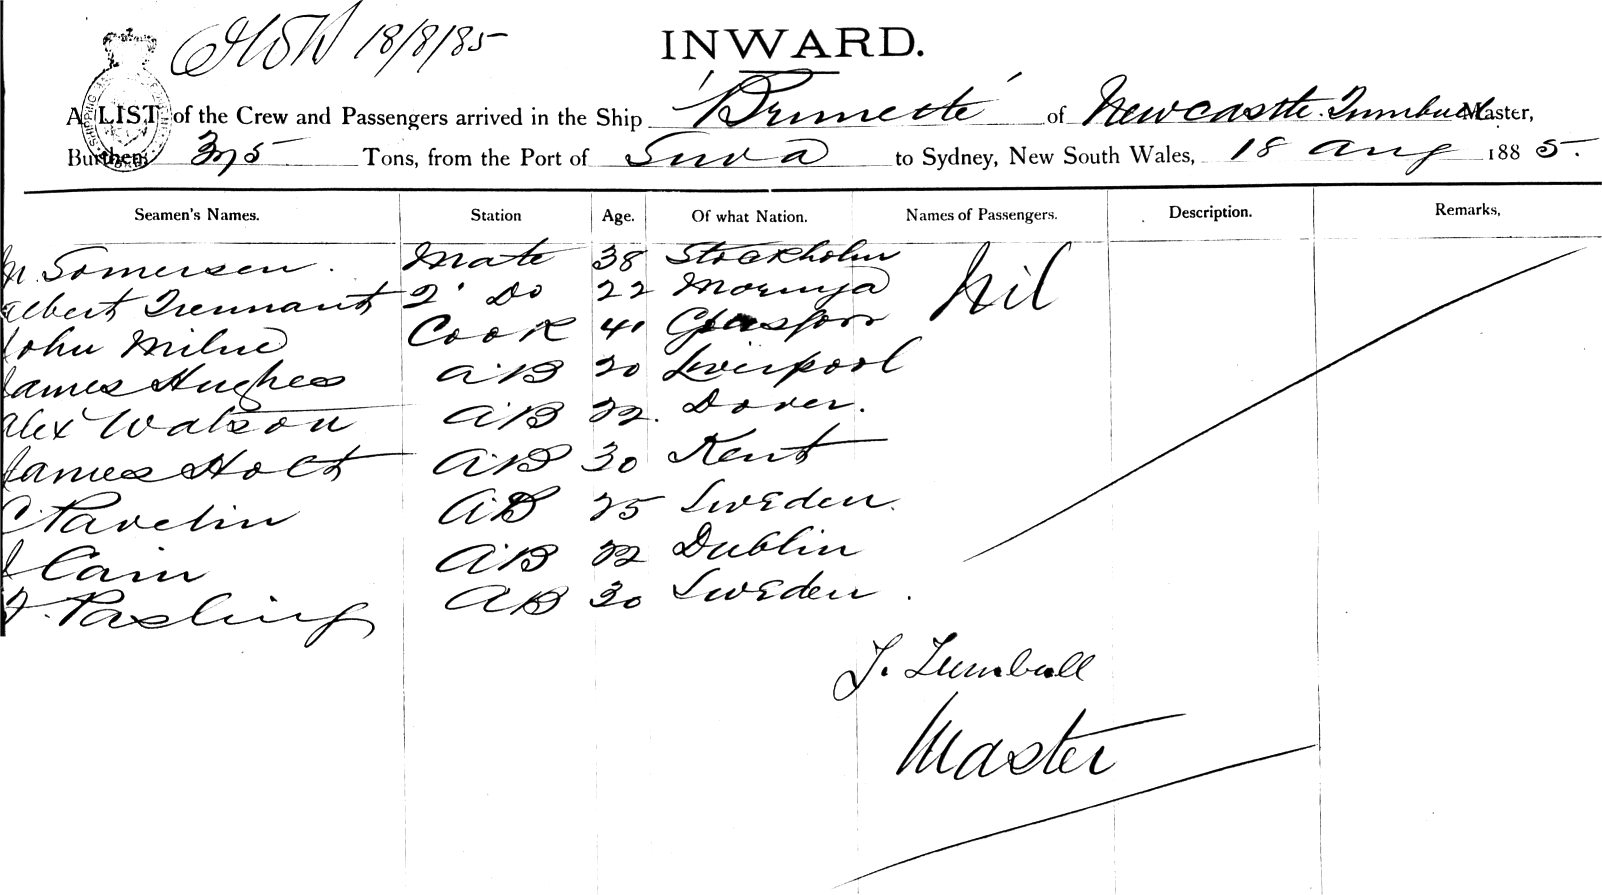 18/8/85
INWARD.
A LIST of the Crew and Passengers arrived in the Ship 'Brunette' of Newcastle. Turnbull Master,
Burthen 375 Tons, from the Port of Suva to Sydney, New South Wales, 18 Aug 1885.
Seamen's Names. Station Age. Of what Nation. Names of Passengers. Description. Remarks,
Somersen. Mate 38 Stockholm Nil
Albert Trennant 2' Do 22 Moruya
John Milne Cook 41 Glasgow
James Hughes AB 20 Liverpool
Alex Watson AB 22. Dover.
James Holt AB 30 Kent
C. Pavelin AB 25 Sweden.
J Cain AB 22 Dublin
Pasling AB 30 Sweden.
J. Turnbull
Master